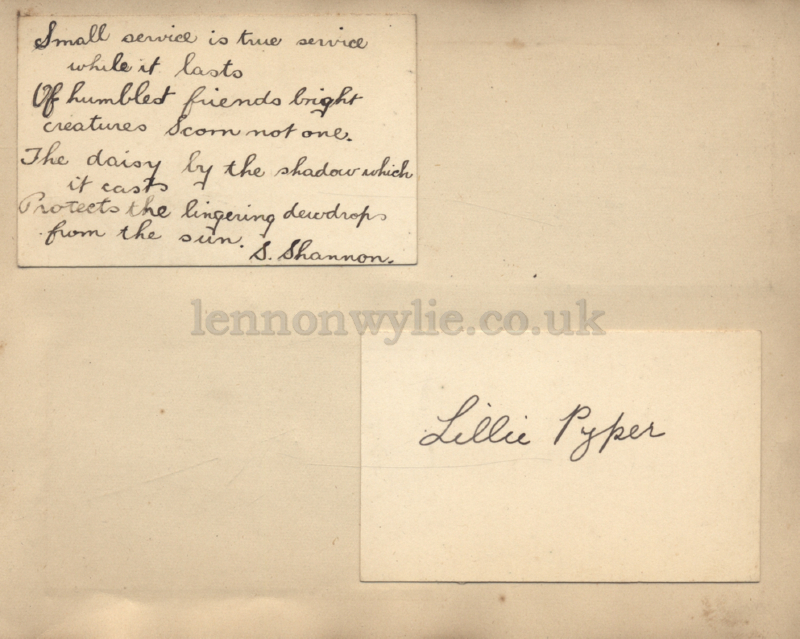 Small service is true service
while it lasts
Of humblest friends bright
creatures Scorn not one.
The daisy by the shadow which
it casts
Protects the lingering dewdrops
from the sun.
S. Shannon.
lennonwylie.co.uk
Lillie Pyper